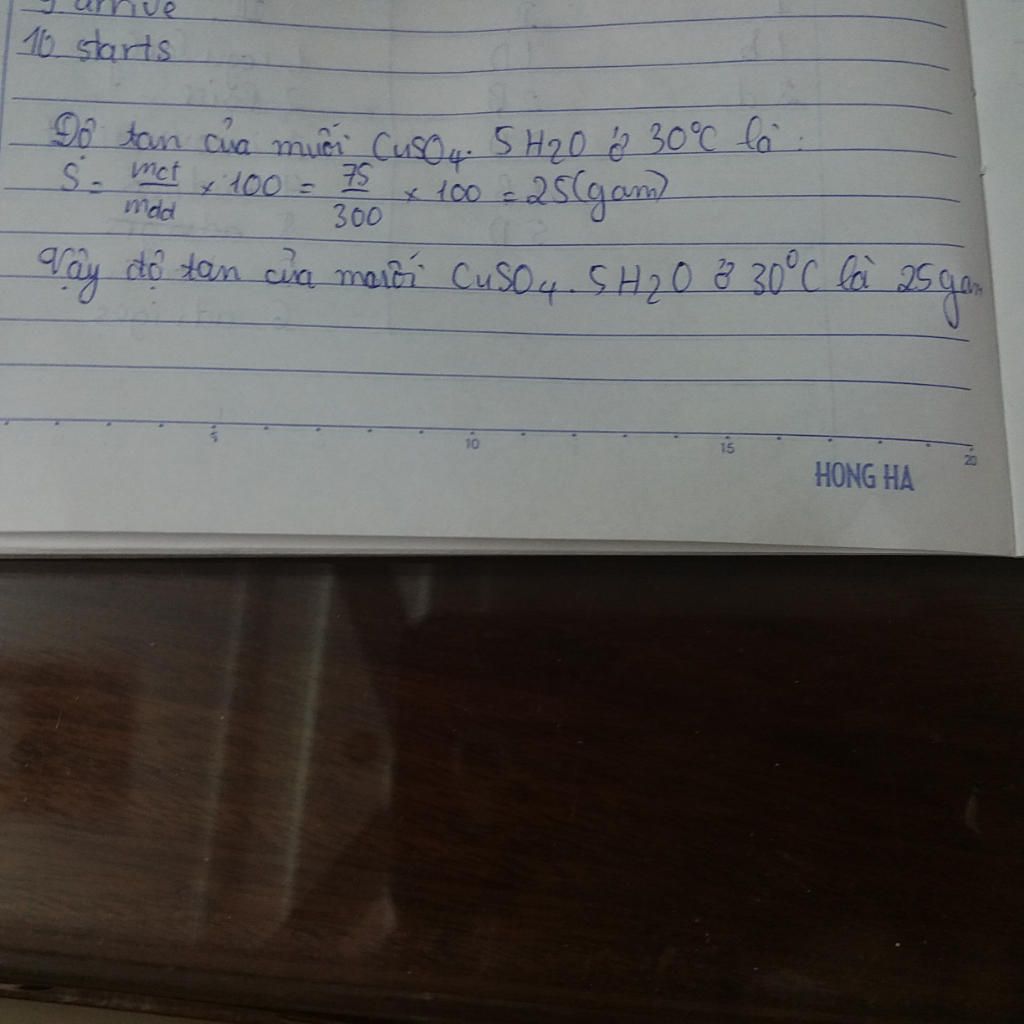 9 arrive
10 starts
Độ tan của muối CuSO4. 5H2O ở 30°C là:
S = mct/mdd × 100 = 75/300 × 100 = 25(gam)
Vậy độ tan của muối CuSO4. 5H2O ở 30°C là 25gam
5 10 15 20
HONG HA